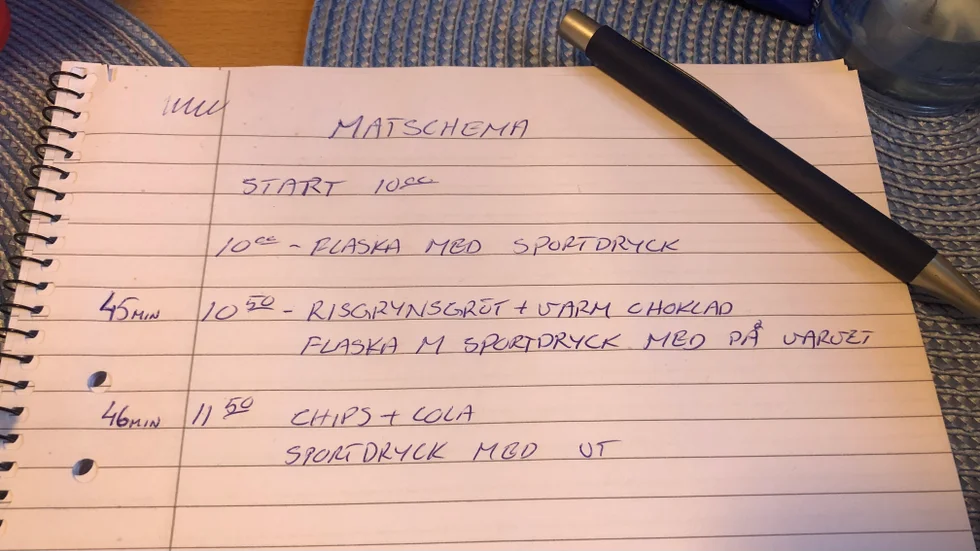 MATSCHEMA
START 10⁰⁰
10⁰⁰ - FLASKA MED SPORTDRYCK
45 MIN 10⁵⁰ - RISGRYNSGRÖT + VARM CHOKLAD
FLASKA M SPORTDRYCK MED PÅ VARVET
46 MIN 11⁵⁰ CHIPS + COLA
SPORTDRYCK MED UT